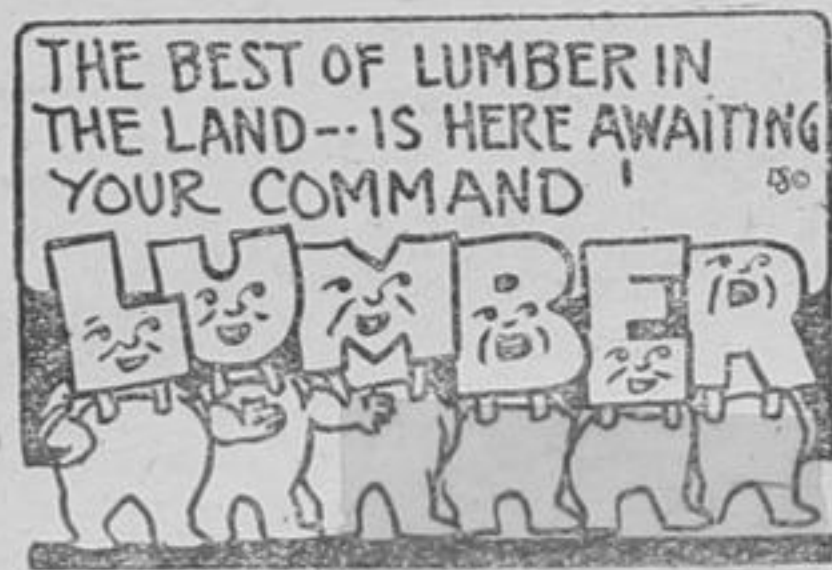 THE BEST OF LUMBER IN
THE LAND--IS HERE AWAITING
YOUR COMMAND
LUMBER